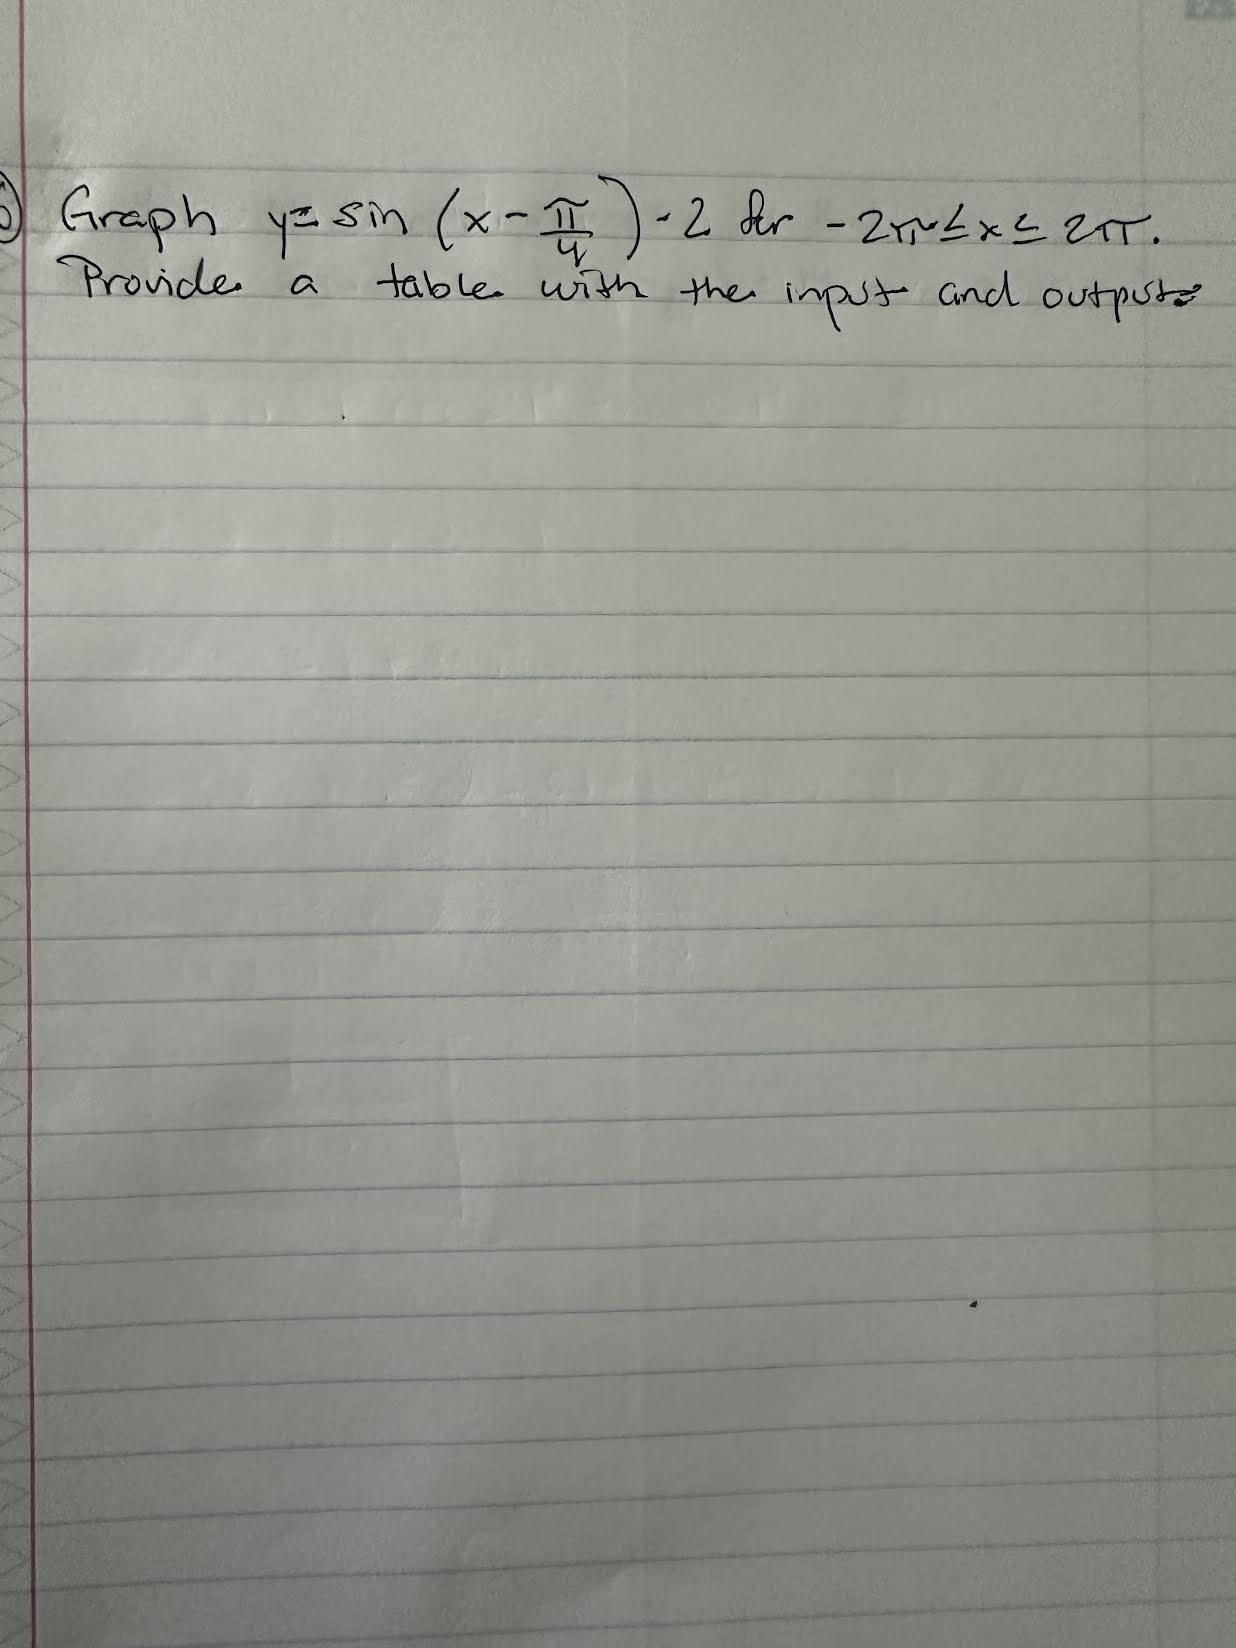 Graph y= sin (x - π/4) - 2 for -2π ≤ x ≤ 2π.
Provide a table with the input and output